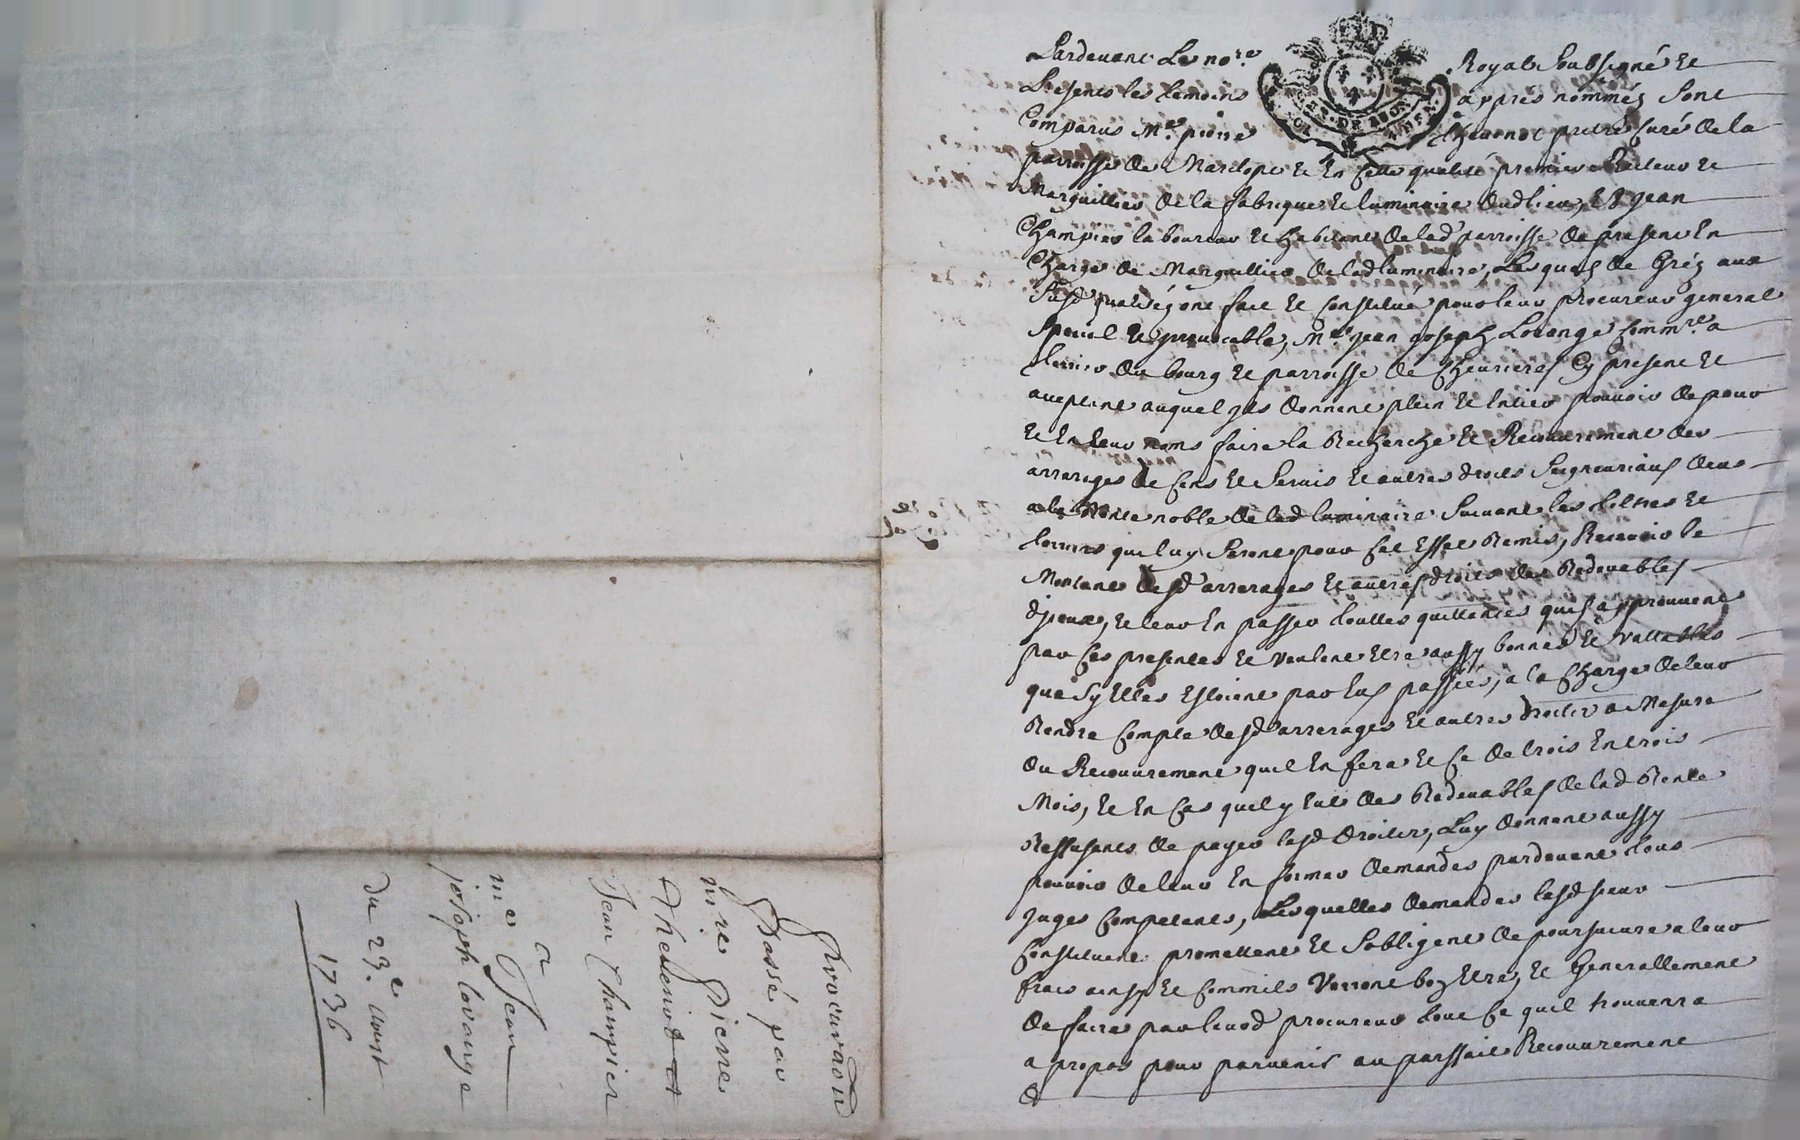 Pardevant Le no.re Royal soubsigné et
Presents les temoins appres nommés sont
Comparus M.re pierre thevenot pretre curé de la
parroisse de Marclopt et en cette qualité premier Recteur et
Marguillier de la fabrique et luminaire dudlieu, Et Jean
Champier laboureur et habitant de lad parroisse de present En
Charge de Marguillier de lad luminaire, Lesquels de gréz aux
susd qualitéz ont fait et constitué pour leur procureur general
special et yrevocable, M.e Jean Joseph Lovange comm.re a
terrier du bourg et parroisse de Chevrieres Cy present et
aceptant auquel jls donnent plein et entier pouvoir de pour
et En leur noms faire la Recherche et Recouvrement des
arrerages de Cens et Servis et autres droits Seigneuriaux deus
a la Rente noble de lad luminaire suivant les tiltres et
terriers qui luy seront pour cet Effet Remis, Recevoir le
Montant desd arrerages et autres droits des Redevables
djceux, et leur En passer touttes quittances quils approuvent
par ces presentes et veulent etre aussy bonnes et vallables
que sy Elles Estoient par Eux passées, a la Charge de leur
Rendre Compte desd arrerages et autres droits a Mesure
du Recouvrement quil En fera et ce de trois En trois
Mois, et En Cas quil y eut des Redevables de lad Rente
Reffusants de payer lesd droits, Luy donnent aussy
pouvoir de leur En former demandes pardevant tous
juges Competants, Lesquelles demandes lesd sieurs
Constituants promettent et sobligent de poursuivre a leur
frais ainsy et comm'ils verront bon Etre, et Generallement
de faire par leurd procureur tout ce quil trouvera
a propos pour parvenir au parffait Recouvrement
d
Procuration
Passé par
m.re Pierre
thevenot et
Jean Champier
a
m.e Jean
joseph lovange
du 23.e aoust
1736